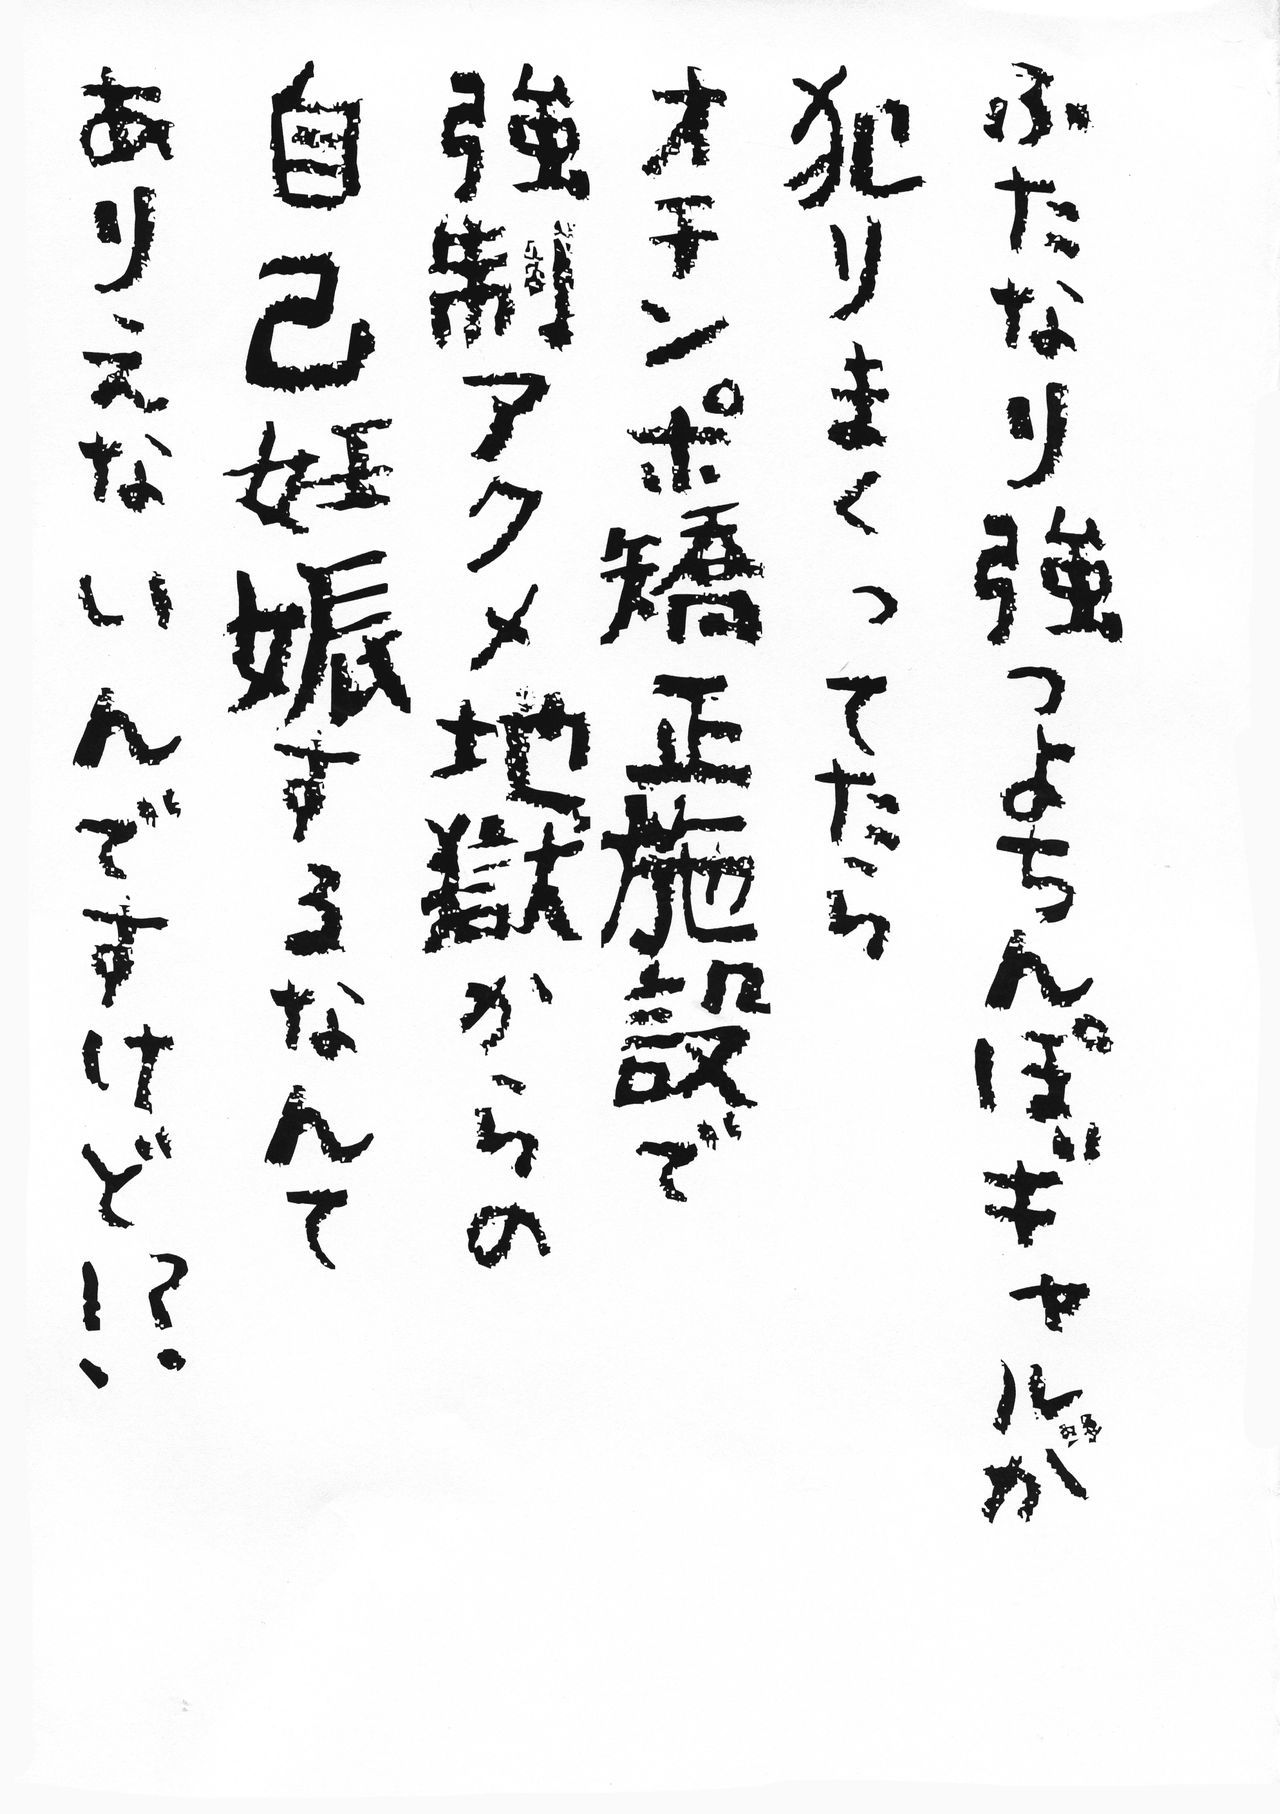 ふたなり強つよちんぽギャルが
犯りまくってたら
オチンポ矯正施設で
強制アクメ地獄からの
自己妊娠するなんて
ありえないんですけど!?